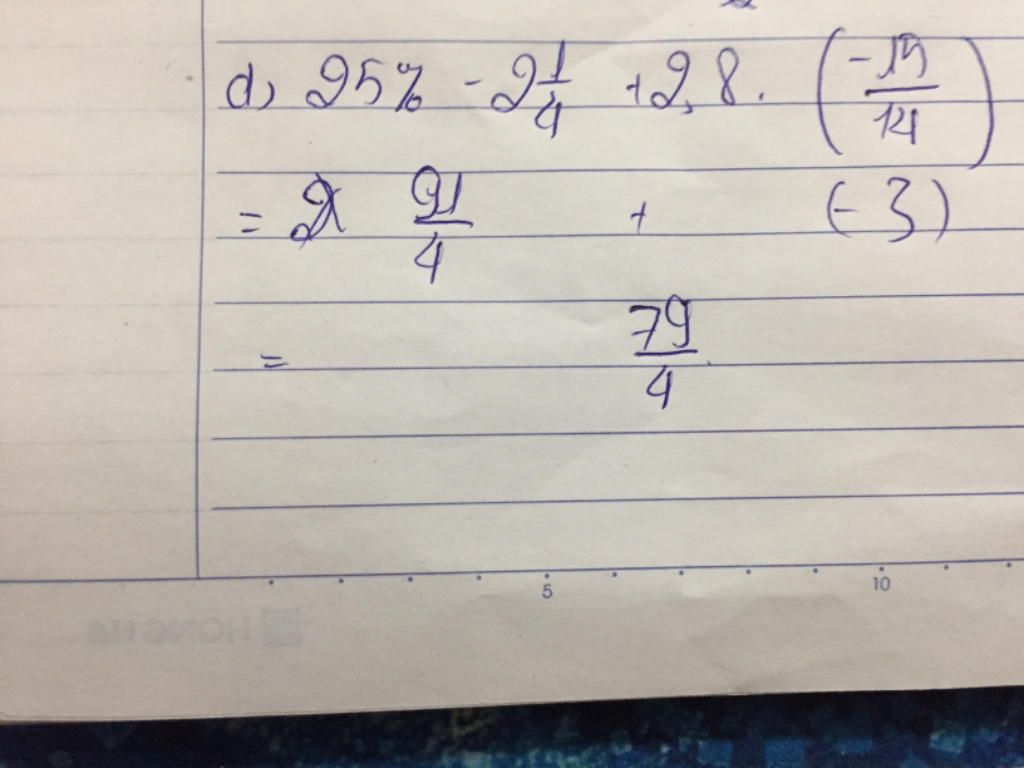 d) 25% - 2 1/4 + 2,8 . (-15/14)
= 91/4 + (-3)
= 79/4
5 10
HONG HA